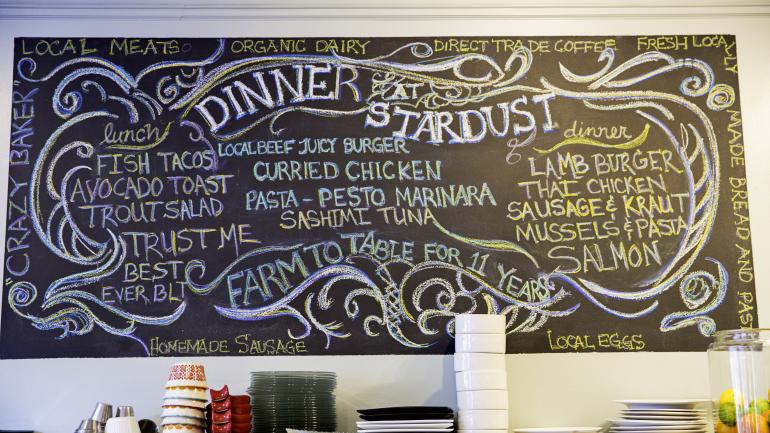 LOCAL MEATS ORGANIC DAIRY DIRECT TRADE COFFEE FRESH LOCALLY
MADE BREAD AND
"CRAZY BAKER"
DINNER AT
STARDUST
lunch
FISH TACOS
AVOCADO TOAST
TROUT SALAD
TRUST ME
BEST
EVER BLT
LOCAL BEEF JUICY BURGER
CURRIED CHICKEN
PASTA - PESTO MARINARA
SASHIMI TUNA
& dinner
LAMB BURGER
THAI CHICKEN
SAUSAGE & KRAUT
MUSSELS & PASTA
SALMON
FARM TO TABLE FOR 11 YEARS
HOMEMADE SAUSAGE
LOCAL EGGS